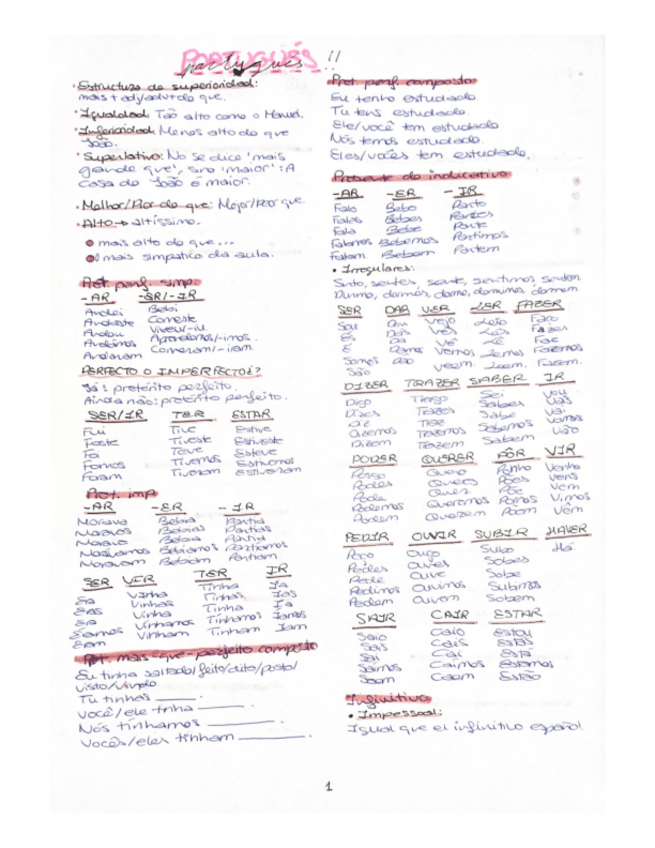 PORTUGUÊS !!
português
• Estructura de superioridad:
mais + adj/adv + do que.
• Igualdad: Tão alto como o Manuel.
• Inferioridad: Menos alto do que
João.
• Superlativo: No se dice 'mais
grande que', sino 'maior': A
casa do João é maior.
• Melhor/Pior do que: Mejor/Peor que
• Alto → altíssimo.
mais alto do que...
mais simpático da aula.
Pret. perf. simp.
-AR -ER/-IR
Andei Bebi
Andaste Comeste
Andou Viveu/-iu
Andámos Aprendemos/-imos.
Andaram Comeram/-iram
PERFECTO O IMPERFECTO?
Já: pretérito perfeito.
Ainda não: pretérito perfeito.
SER/IR TER ESTAR
Fui Tive Estive
Foste Tiveste Estiveste
Foi Teve Esteve
Fomos Tivemos Estivemos
Foram Tiveram Estiveram
Pret. imp
-AR -ER -IR
Morava Bebia Partia
Moravas Bebias Partias
Morava Bebia Partia
Morávamos Bebíamos Partíamos
Moravam Bebiam Partiam
SER VIR TER IR
Era Vinha Tinha Ia
Eras Vinhas Tinhas Ias
Era Vinha Tinha Ia
Éramos Vínhamos Tínhamos Íamos
Eram Vinham Tinham Iam
Pret. mais-que-perfeito composto
Eu tinha saltado/feito/dito/posto/
visto/vindo
Tu tinhas ______
Você/ele tinha ______.
Nós tínhamos ______.
Vocês/eles tinham ______.
Pret. perf. composto
Eu tenho estudado.
Tu tens estudado.
Ele/você tem estudado
Nós temos estudado.
Eles/vocês tem estudado.
Presente do indicativo
-AR -ER -IR
Falo Bebo Parto
Falas Bebes Partes
Fala Bebe Parte
Falamos Bebemos Partimos
Falam Bebem Partem
• Irregulares:
Sinto, sentes, sente, sentimos, sentem
Durmo, dormes, dorme, dormimos, dormem
SER DAR VER LER FAZER
Sou Dou Vejo Leio Faço
És Dás Vês Lês Fazes
É Dá Vê Lê Faz
Somos Damos Vemos Lemos Fazemos
São Dão Veem Leem Fazem.
DIZER TRAZER SABER IR
Digo Trago Sei Vou
Dizes Trazes Sabes Vais
Diz Traz Sabe Vai
Dizemos Trazemos Sabemos Vamos
Dizem Trazem Sabem Vão
PODER QUERER PÔR VIR
Posso Quero Ponho Venho
Podes Queres Pões Vens
Pode Quer Põe Vem
Podemos Queremos Pomos Vimos
Podem Querem Põem Vêm
PEDIR OUVIR SUBIR HAVER
Peço Ouço Subo Há
Pedes Ouves Sobes
Pede Ouve Sobe
Pedimos Ouvimos Subimos
Pedem Ouvem Sobem
SAIR CAIR ESTAR
Saio Caio Estou
Sais Cais Estás
Sai Cai Está
Saímos Caímos Estamos
Saem Caem Estão
Infinitivo
• Impessoal:
Igual que el infinitivo español
1